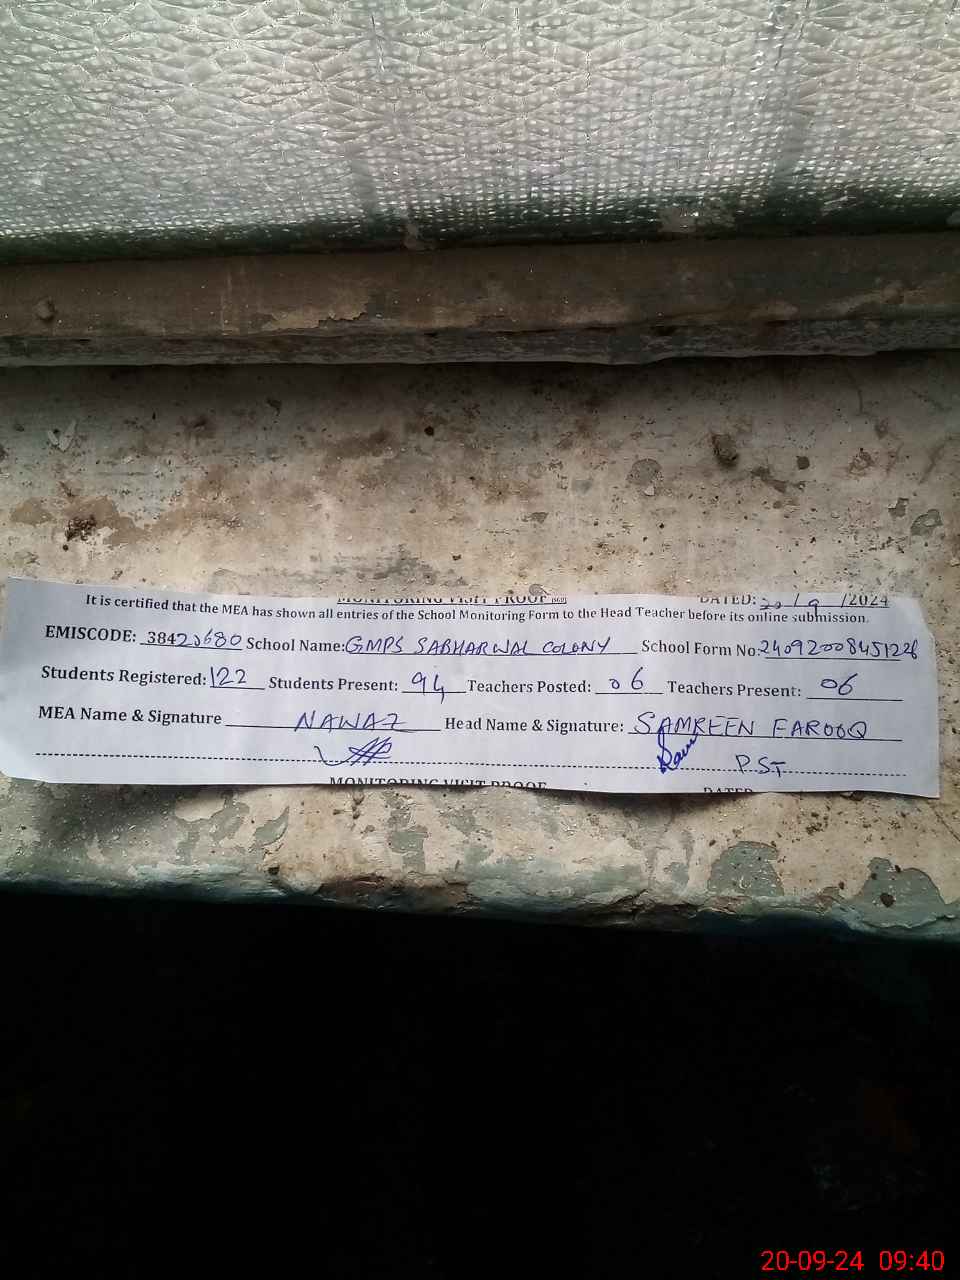 MONITORING VISIT PROOF DATED: 20/9/2024
It is certified that the MEA has shown all entries of the School Monitoring Form to the Head Teacher before its online submission.
EMISCODE: 38420680 School Name: GMPS SABHARWAL COLONY School Form No: 24092008451226
Students Registered: 122 Students Present: 94 Teachers Posted: 06 Teachers Present: 06
MEA Name & Signature NAWAZ Head Name & Signature: SAMREEN FAROOQ
P.S.T
MONITORING VISIT PROOF DATED
20-09-24 09:40